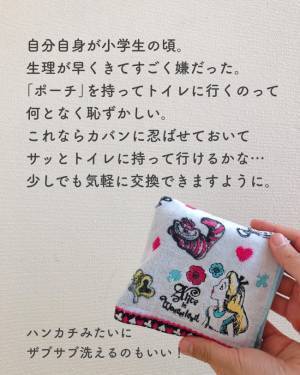 自分自身が小学生の頃。
生理が早くきてすごく嫌だった。
「ポーチ」を持ってトイレに行くのって
何となく恥ずかしい。
これならカバンに忍ばせておいて
サッとトイレに持って行けるかな…
少しでも気軽に交換できますように。
Alice
in
Wonderland
ハンカチみたいに
ザブザブ洗えるのもいい！